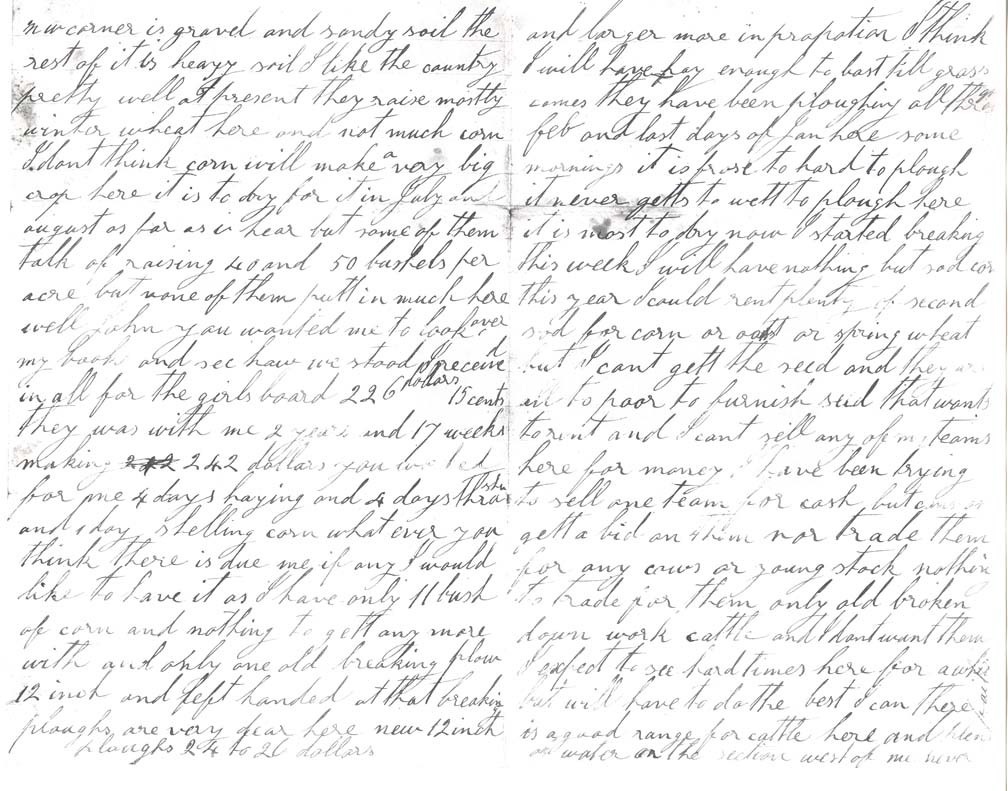 n w corner is gravel and sandy soil the
rest of it is heavy soil I like the country
pretty well at present they raise mostly
winter wheat here and not much corn
I dont think corn will make a very big
crop here it is to dry for it in July and
august as far as i hear but some of them
talk of raising 40 and 50 bushels per
acre but none of them putt in much here
well John you wanted me to look over
my book and see how we stood I received
in all for the girls board 226 dollars 15 cents
they was with me 2 years and 17 weeks
making 242 dollars you worked
for me 4 days haying and 4 days
and 1 day shelling corn what ever you
think there is due me if any I would
like to have it as I have only 11 bush
of corn and nothing to gett any more
with and only one old breaking plow
12 inch and left handed at that breaking
ploughs are very dear here new 12 inch
ploughs 24 to 26 dollars
and larger more in propotion I think
I will have hay enough to last till grass
comes they have been ploughing all
feb and last days of Jan here some
mornings it is frose to hard to plough
it never getts to wett to plough here
it is most to dry now I started breaking
this week I will have nothing but sod corn
this year I could rent plenty of second
sod for corn or oats or spring wheat
but I cant gett the seed and they are
all to poor to furnish seed that wants
to rent and I cant sell any of my teams
here for money I have been trying
to sell one team for cash but
gett a bid on them nor trade them
for any cows or young stock nothing
to trade for them only old broken
down work cattle and I dont want them
I expect to see hard times here for a while
but will have to do the best I can There
is a good range for cattle here and
water on the section west of me never